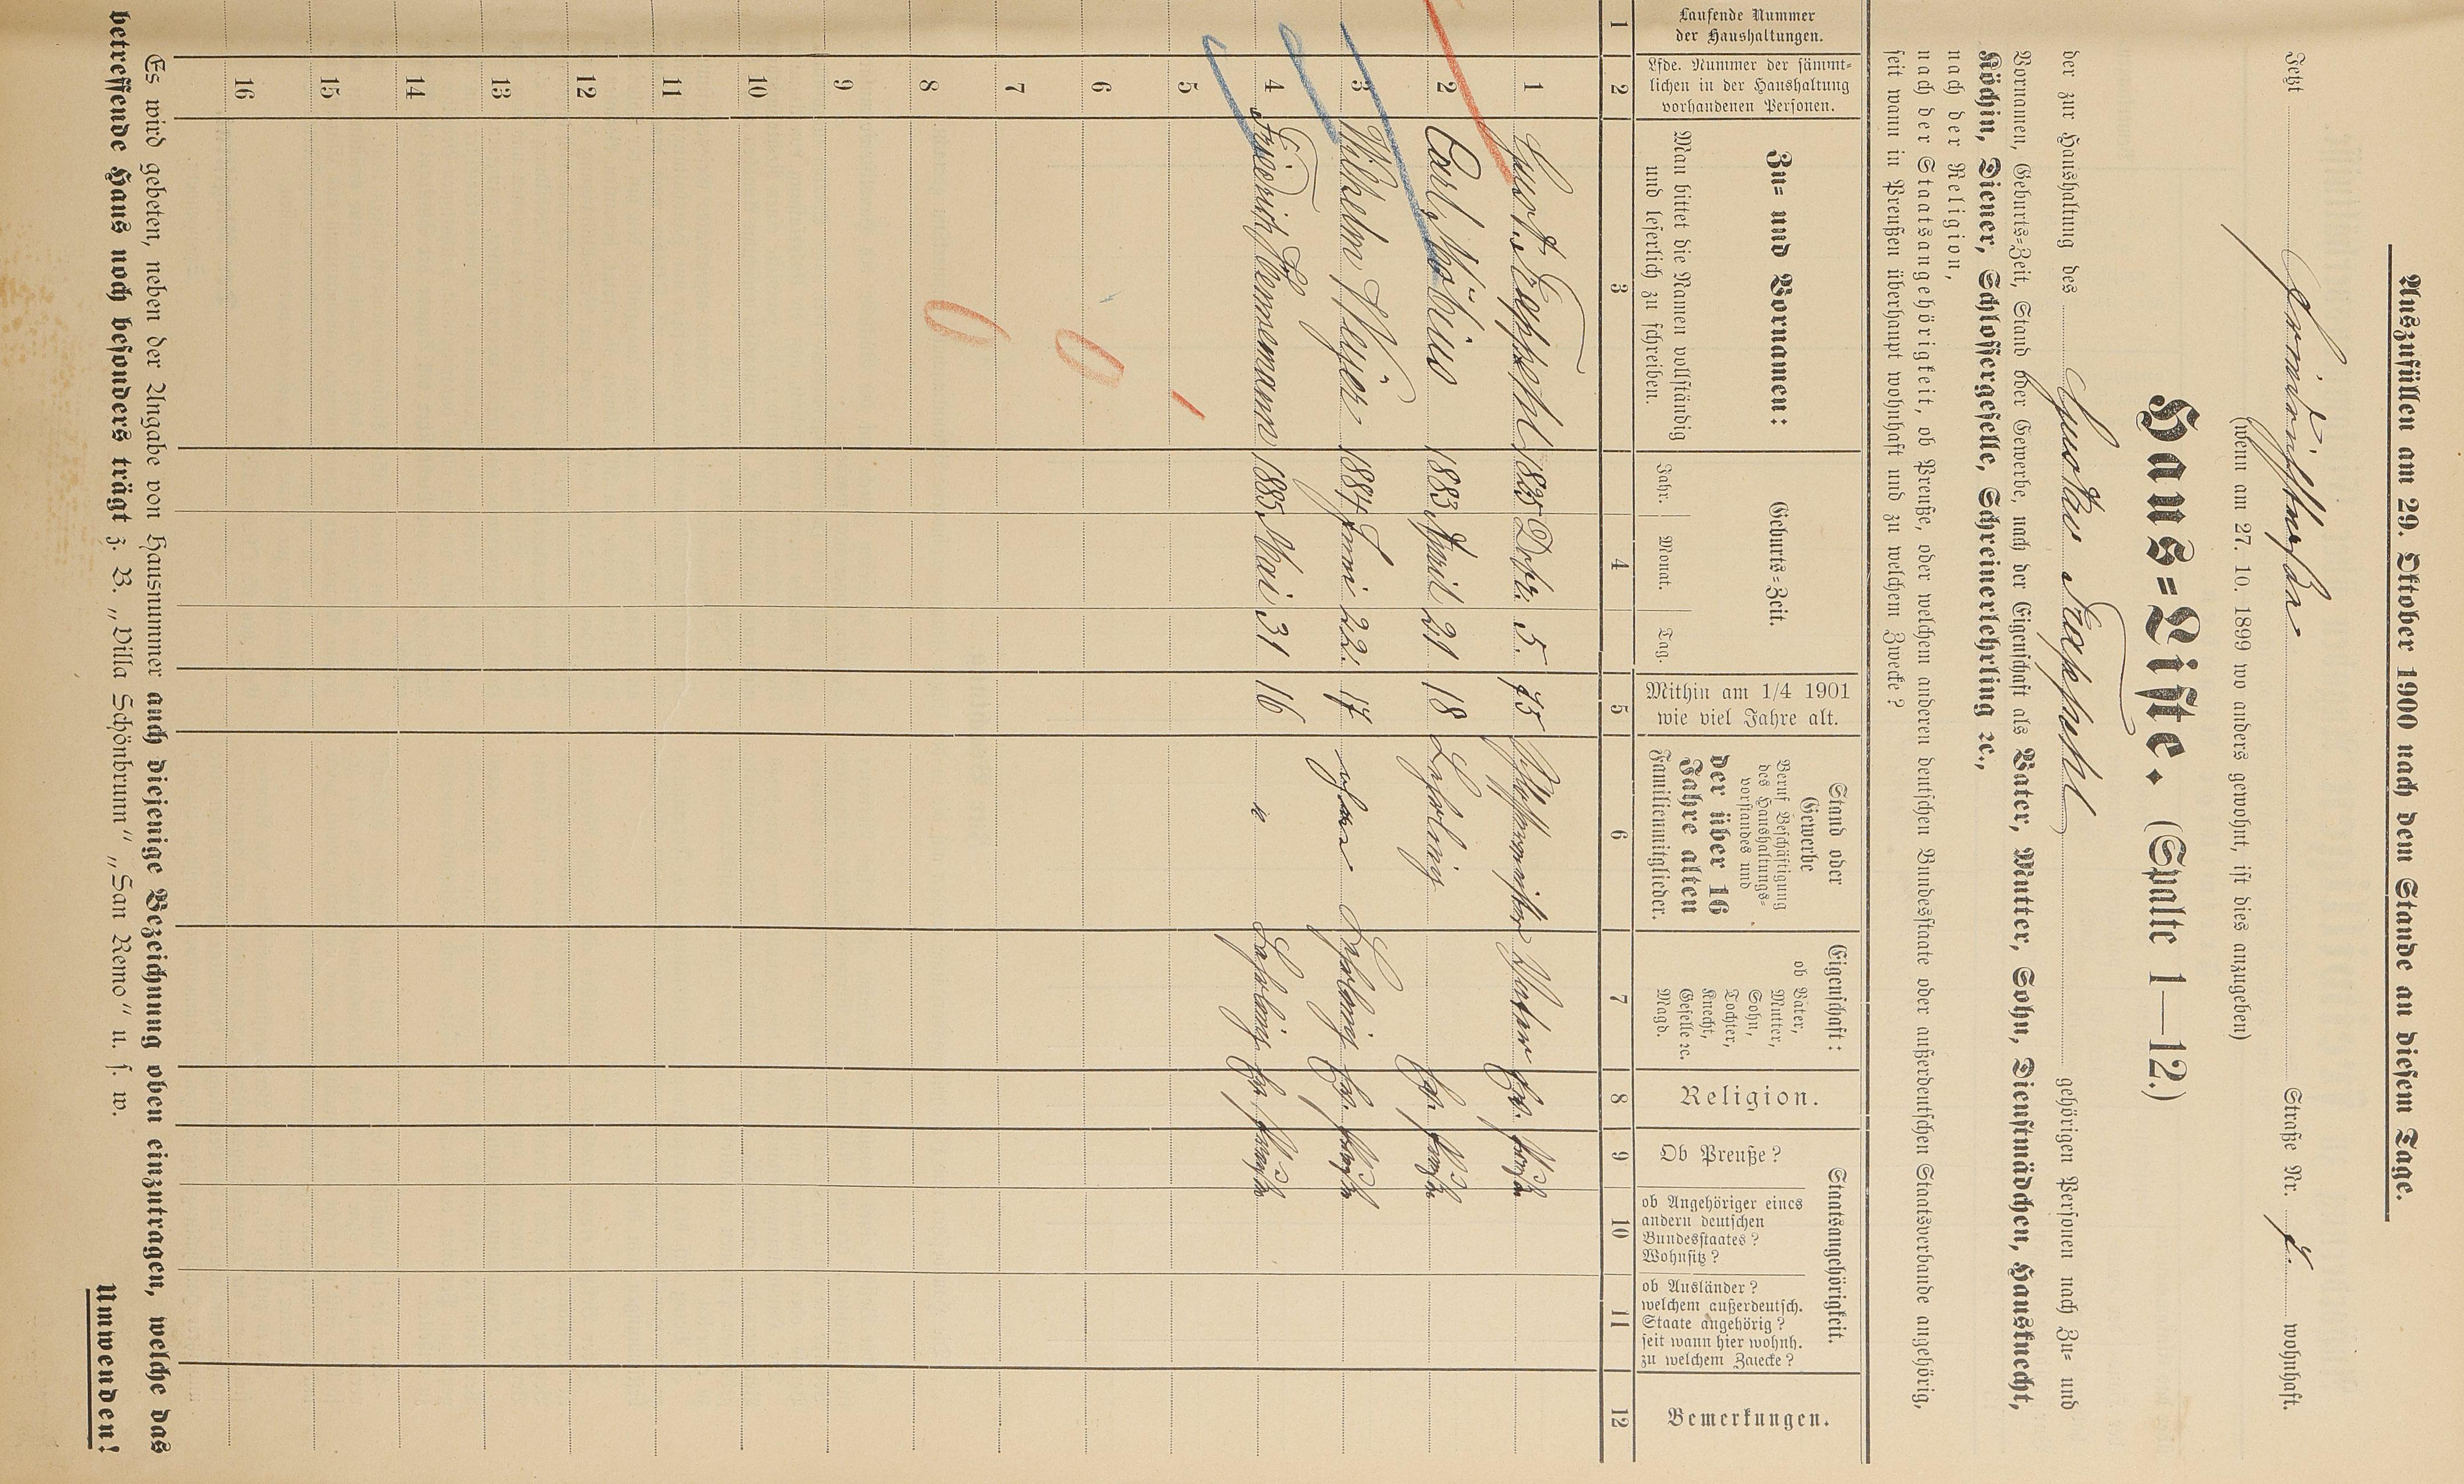 Auszufüllen am 29. Oktober 1900 nach dem Stande an diesem Tage.
Jetzt Friedrichstraße Straße Nr. 8. wohnhaft.
(wenn am 27. 10. 1899 wo anders gewohnt, ist dies anzugeben)
Haus-Liste. (Spalte 1—12.)
der zur Haushaltung des Gustav Trappehl gehörigen Personen nach Zu- und
Vornamen, Geburts-Zeit, Stand oder Gewerbe, nach der Eigenschaft als Vater, Mutter, Sohn, Dienstmädchen, Hausknecht,
Köchin, Diener, Schlossergeselle, Schreinerlehrling ꝛc.,
nach der Religion,
nach der Staatsangehörigkeit, ob Preuße, oder welchem anderen deutschen Bundesstaate oder außerdeutschen Staatsverbande angehörig,
seit wann in Preußen überhaupt wohnhaft und zu welchem Zwecke?
Laufende Nummer
der Haushaltungen.
Lfde. Nummer der sämmt-
lichen in der Haushaltung
vorhandenen Personen.
Zu- und Vornamen:
Man bittet die Namen vollständig
und leserlich zu schreiben.
Geburts-Zeit.
Jahr. Monat. Tag.
Mithin am 1/4 1901
wie viel Jahre alt.
Stand oder
Gewerbe
Beruf Beschäftigung
des Haushaltungs-
vorstandes und
der über 16
Jahre alten
Familienmitglieder.
Eigenschaft:
ob
Vater,
Mutter,
Sohn,
Tochter,
Knecht,
Geselle ꝛc.
Magd.
Religion.
Staatsangehörigkeit.
Ob Preuße?
ob Angehöriger eines
andern deutschen
Bundesstaates?
Wohnsitz?
ob Ausländer?
welchem außerdeutsch.
Staate angehörig?
seit wann hier wohnh.
zu welchem Zwecke?
Bemerkungen.
1 2 3 4 5 6 7 8 9 10 11 12
1 Gust. Trappehl 1825 Dcbr. 5. 75 Vater Ev. Preuße
2 Carl Möbius 1883 April 21 18 Lehrling Ev. Preuße
3 Wilhelm Meyer 1884 Juni 22. 17 ohne Lehrling Ev. Preuße
4 Friedrich Lennemann 1885 Mai 31 16 " Lehrling Ev. Preuße
5
6
7
8
9
10
11
12
13
14
15
16
Es wird gebeten, neben der Angabe von Hausnummer auch diejenige Bezeichnung oben einzutragen, welche das
betreffende Haus noch besonders trägt z. B. „Villa Schönbrunn“ „San Remo“ u. s. w.
Umwenden!